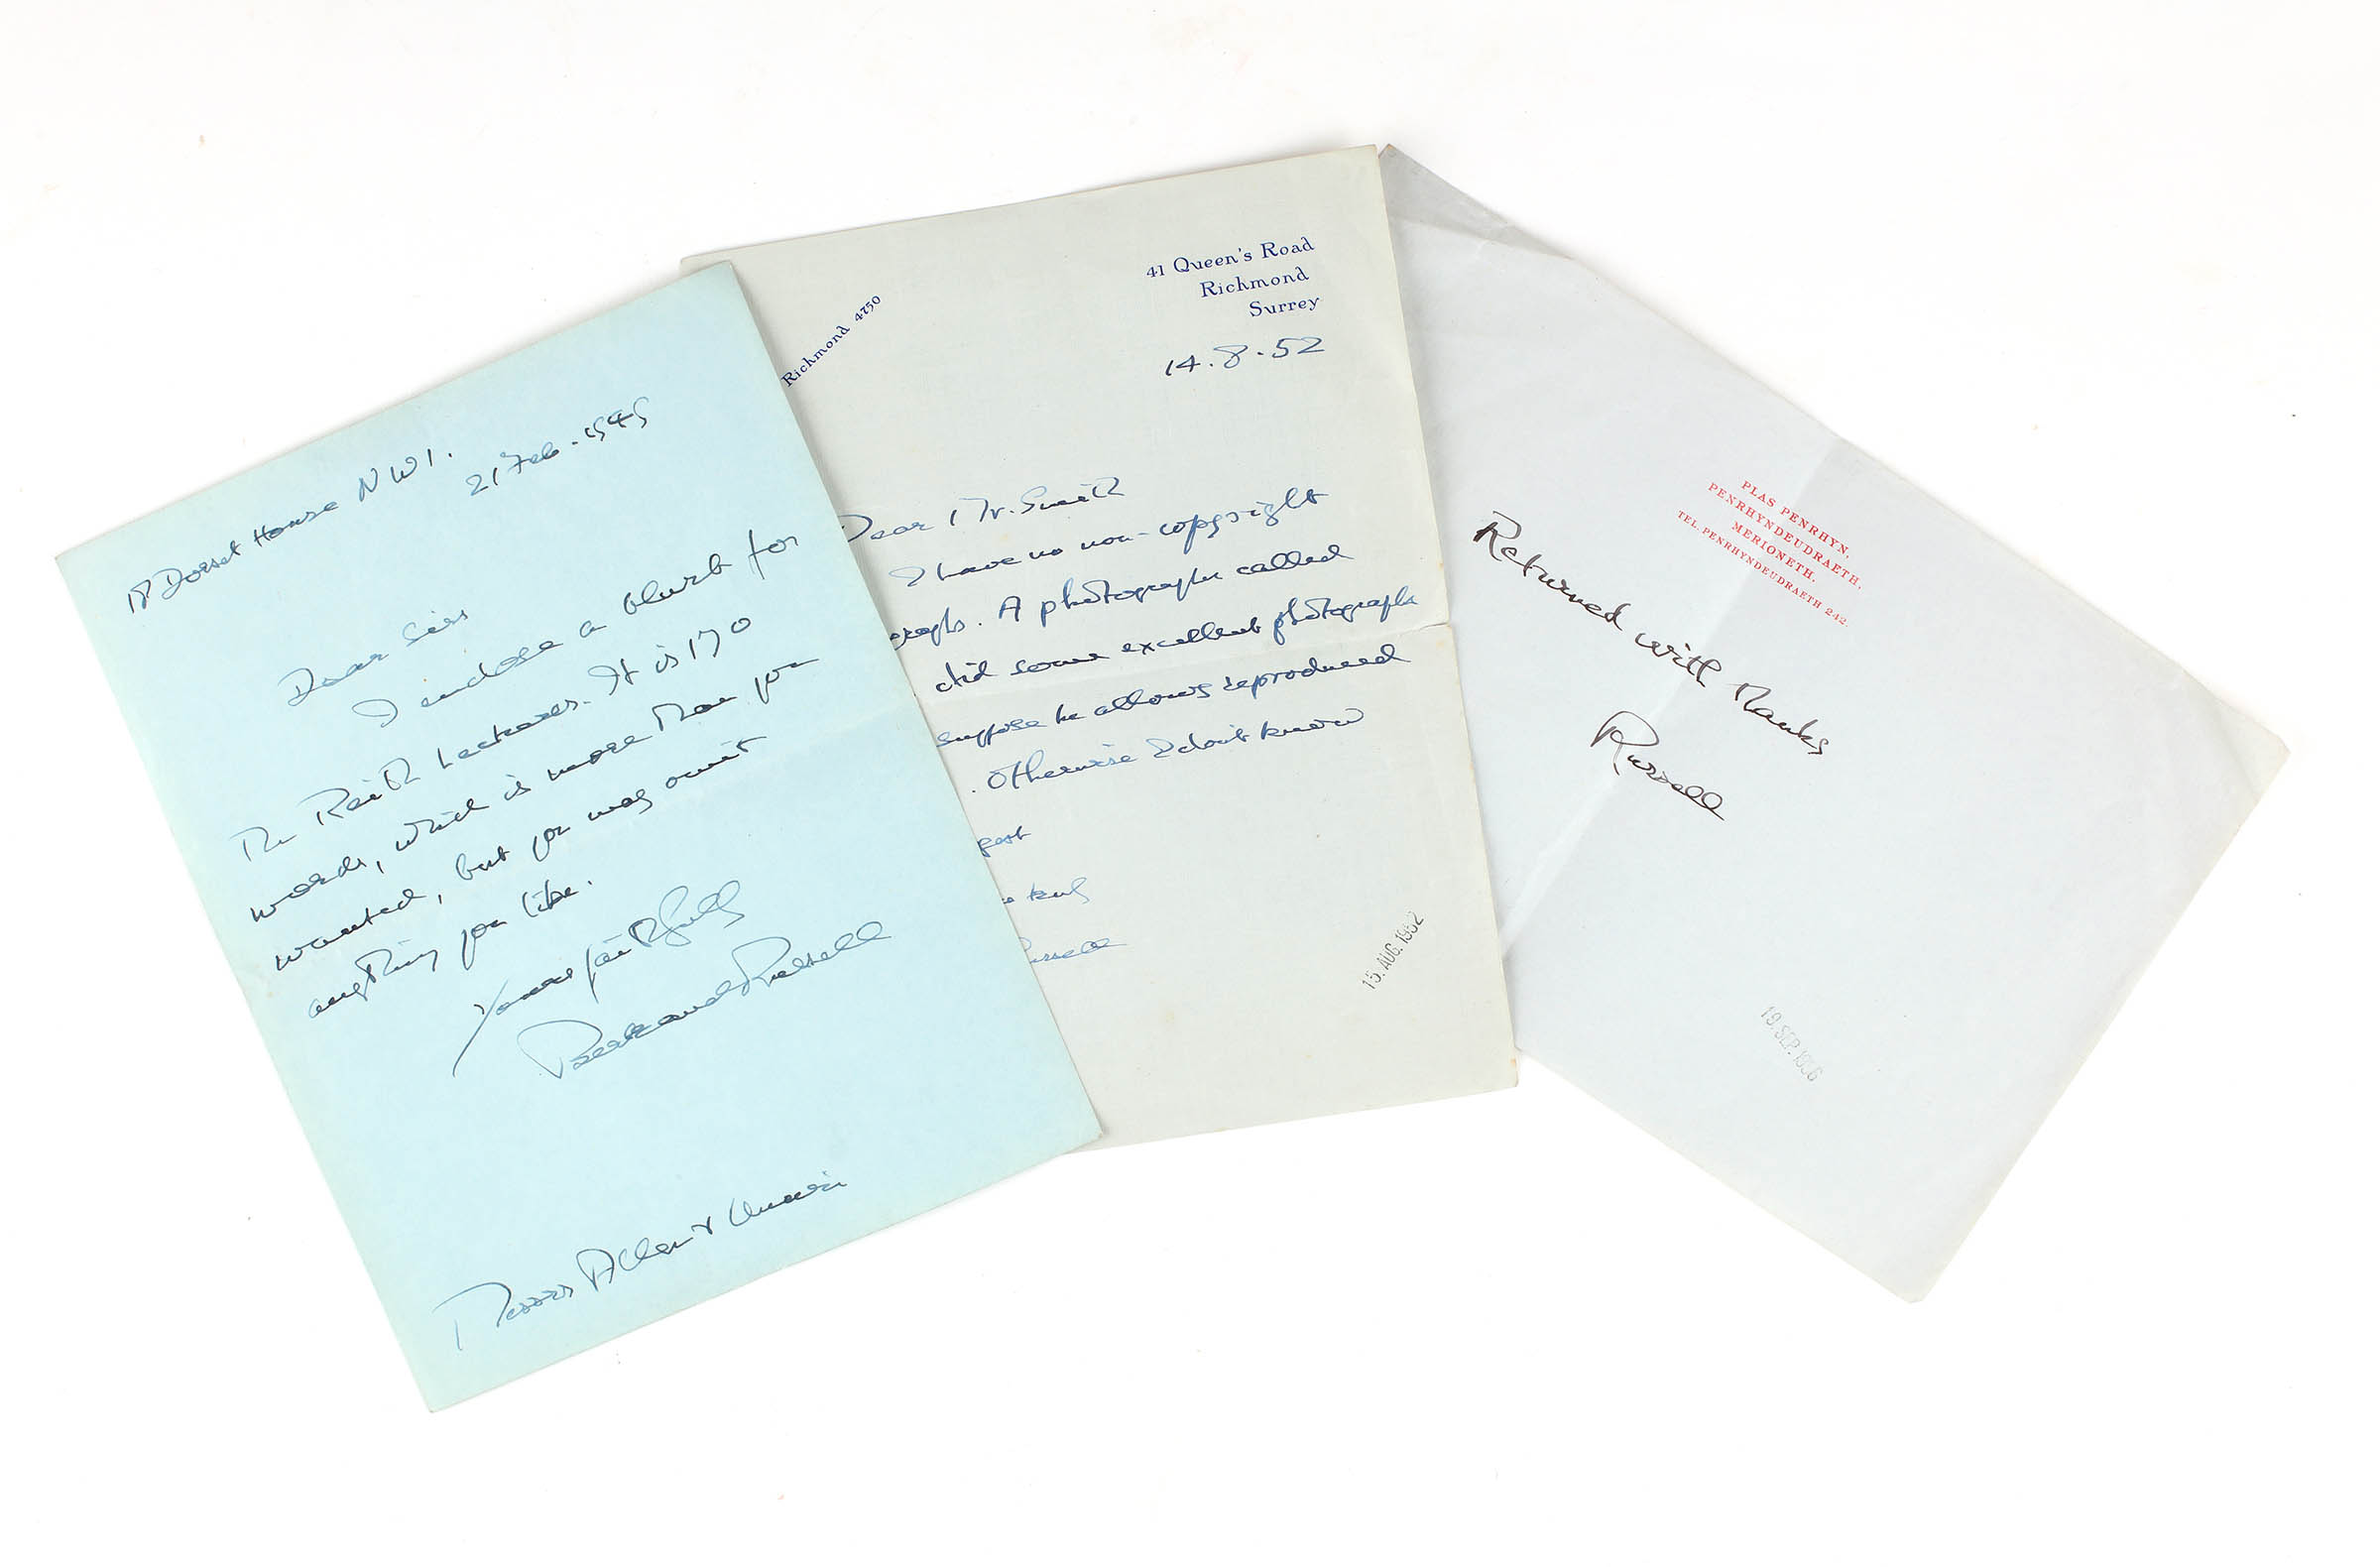 18 Dorset House NW1.
21 Feb. 1949
Dear Sirs
I enclose a blurb for
the Reith Lectures. It is 170
words, which is more than you
wanted, but you may omit
anything you like.
Yours faithfully
Bertrand Russell
Messrs Allen & Unwin
Richmond 4750
41 Queen's Road
Richmond
Surrey
14.8.52
Dear Mr. Smith
I have no non-copyright
graphs. A photographer called
did some excellent photographs
suppose he allows reproduced
. Otherwise I don't know
gest
ussell
15. AUG. 1952
PLAS PENRHYN,
PENRHYNDEUDRAETH,
MERIONETH.
TEL. PENRHYNDEUDRAETH 242.
Returned with thanks
Russell
19. SEP. 1956